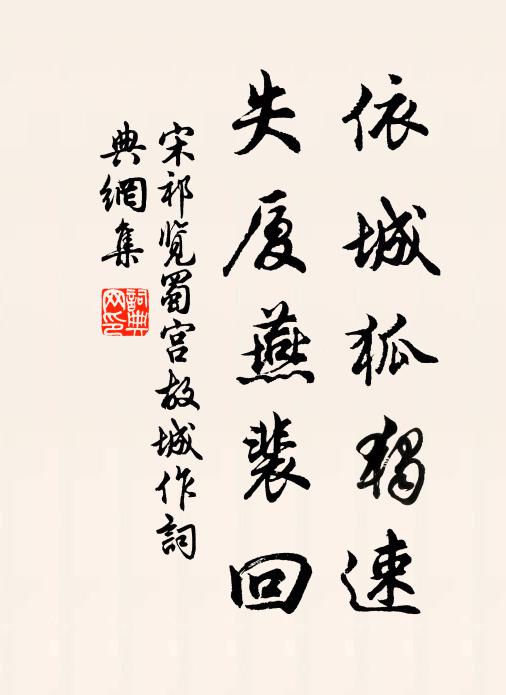 依城狐獨速
失厦燕裴回
宋祁覽蜀宫故城作詞
典網集
詞典
网印